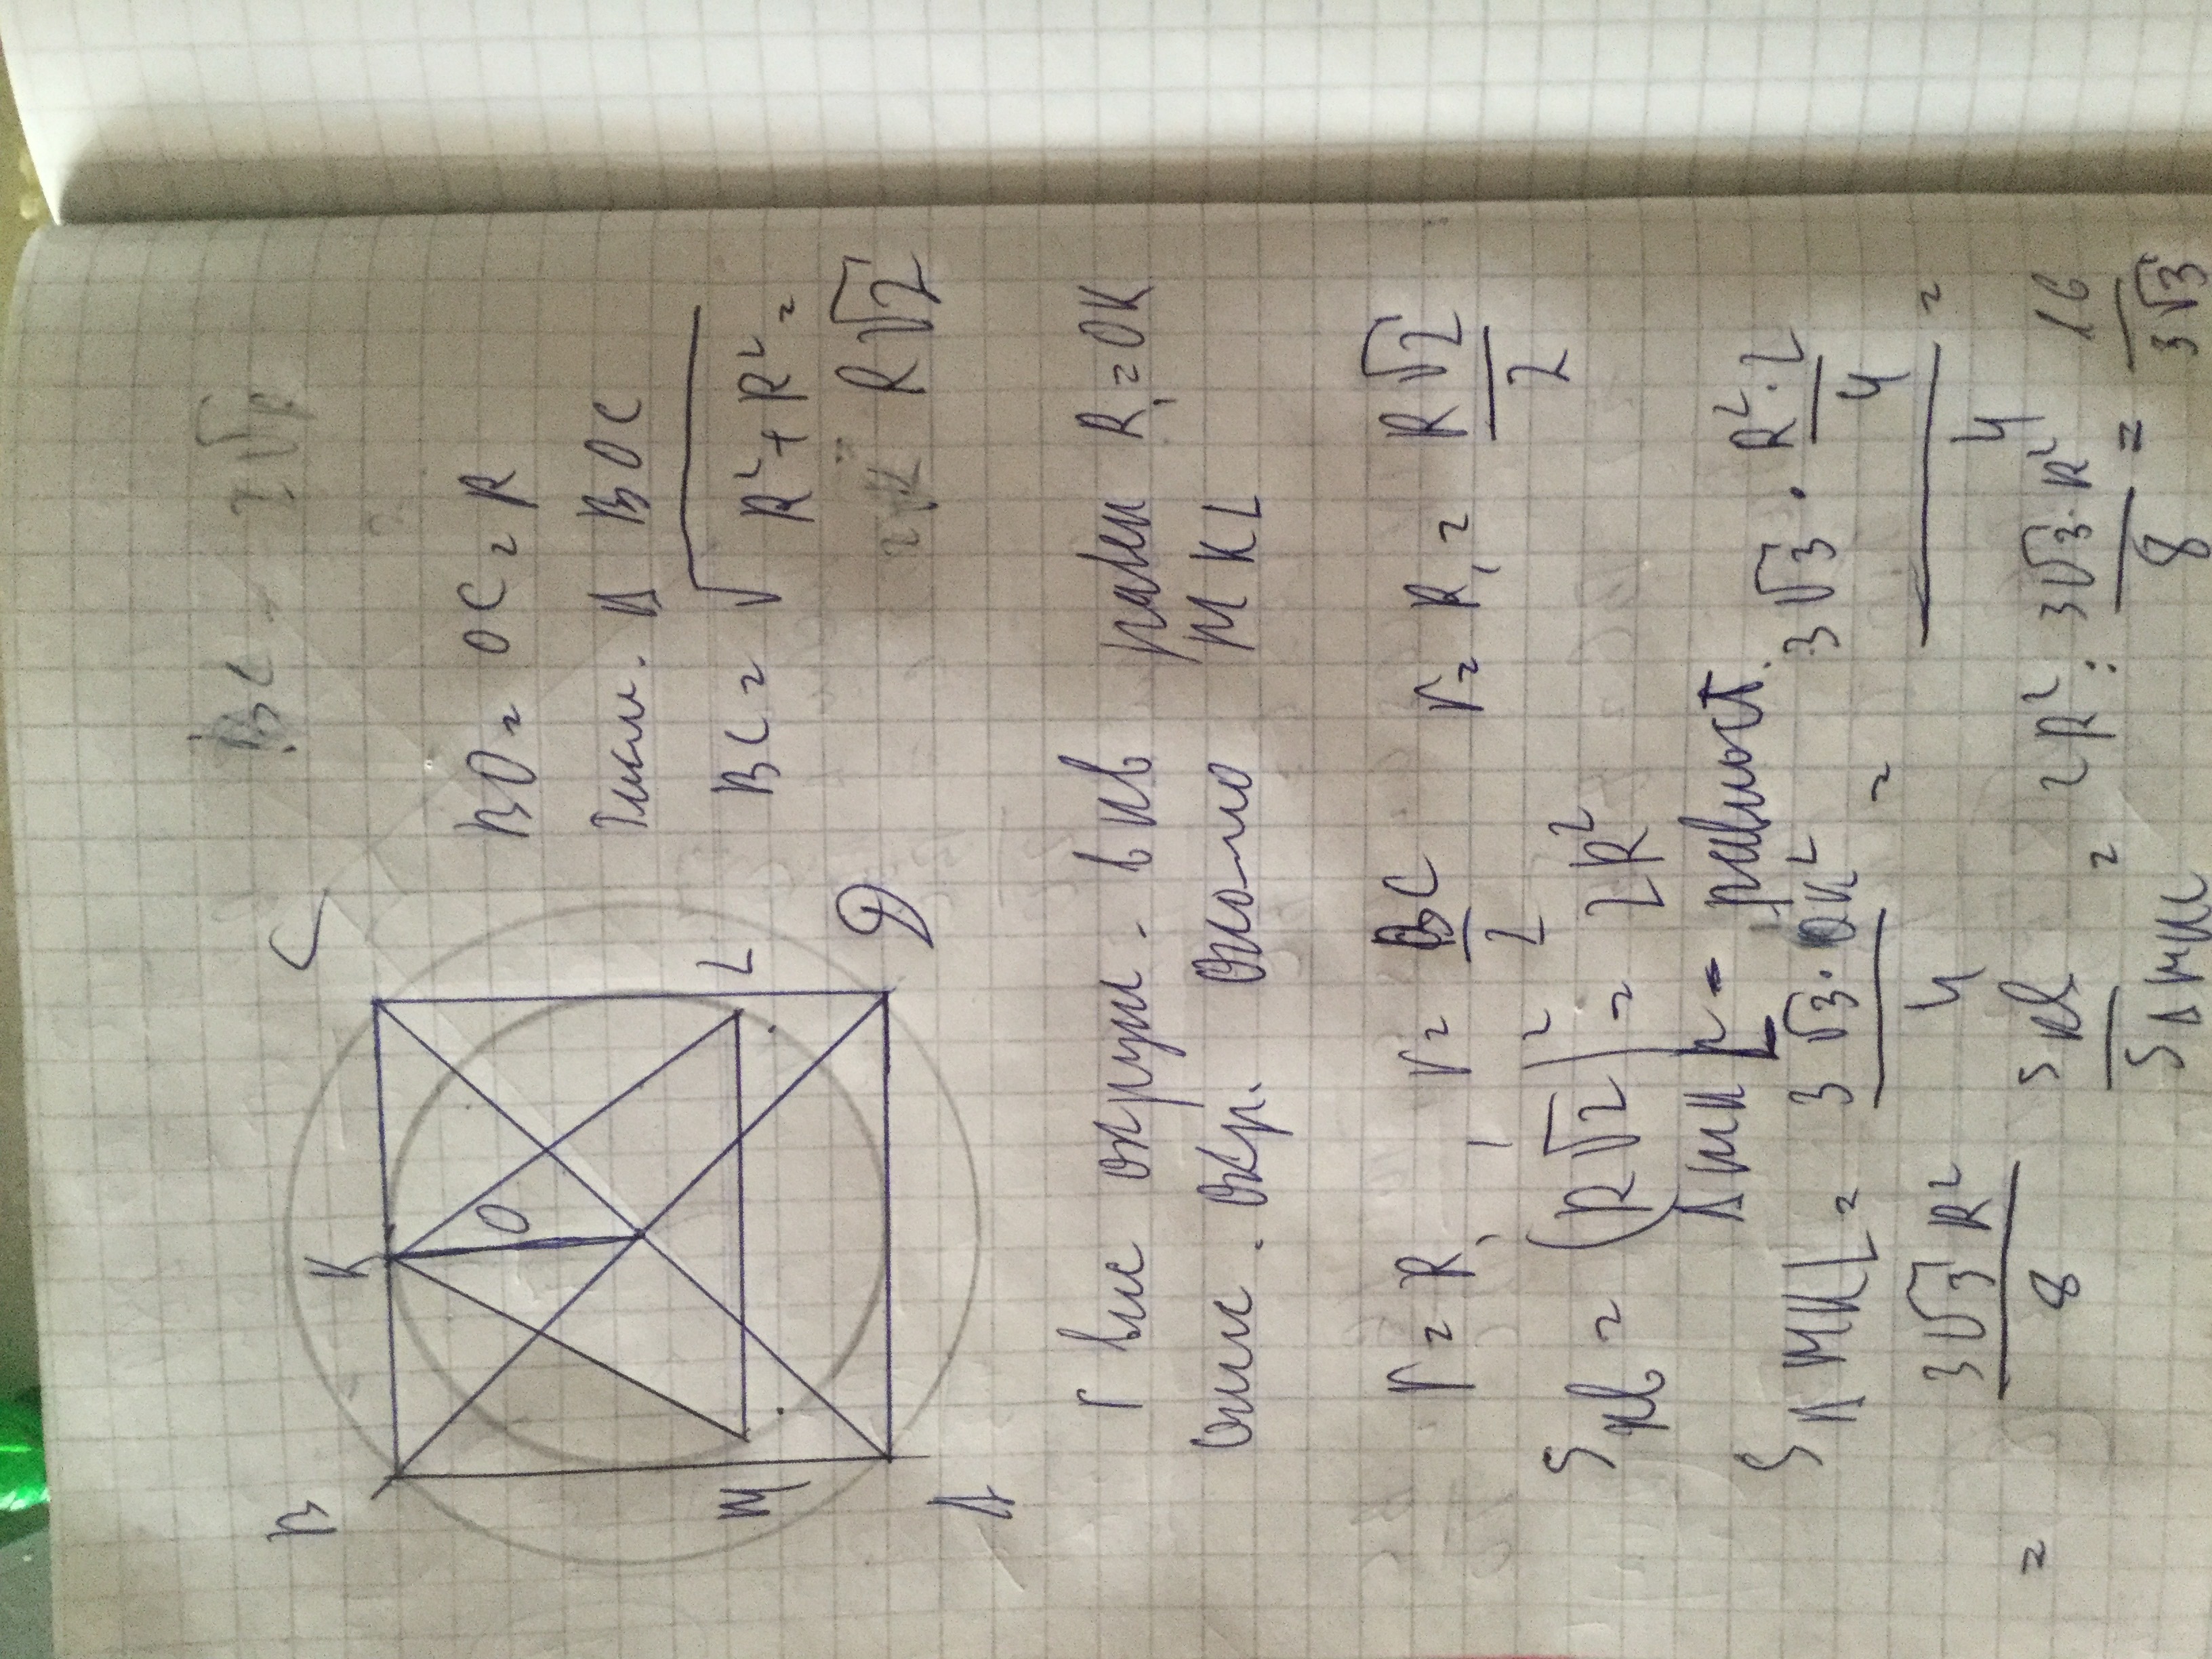 BC = 2√
B K C
O
M L
A D
BO = OC = R
Δ BOC
BC = √R²+R² =
= R√2
r вис окружн. в кв равен R₁ = OK
опис. окр. около MKL
r = R₁, r = BC/2 r = R₁ = R√2/2
Sкв = (R√2)² = 2R²
Δ MKL - равност.
SΔMKL = 3√3·OK²/4 = 3√3·R²·2/4/4 =
= 3√3R²/8
Sкв/SΔMKL = 2R² : 3√3·R²/8 = 16/3√3